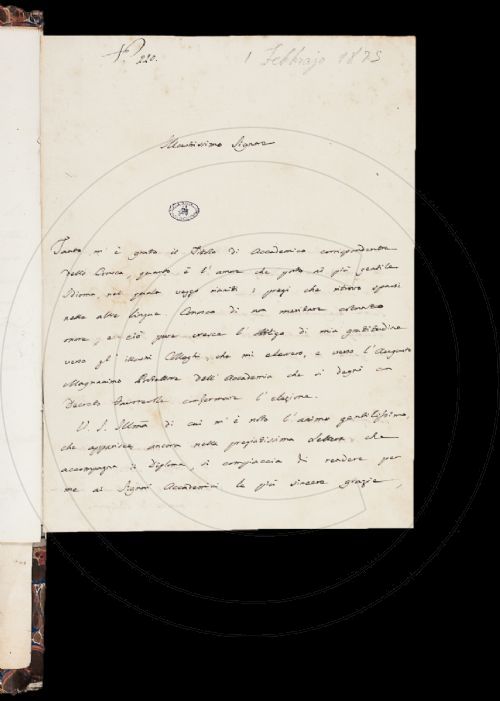 N.° 220.
1 Febbrajo 1825
Illustrissimo Signore
Tanto m'è grato il Titolo di Accademico corrispondente
della Crusca, quanto è l'amore che porto al più gentile
Idioma, nel quale veggo riuniti i pregi che ritrovo sparsi
nelle altre lingue. Conosco di non meritare cotanto
onore, e ciò pure cresce l'obbligo di mia gratitudine
verso gl'illustri Colleghi, che mi elessero, e verso l'Augusto
Magnanimo Protettore dell'Accademia che si degnò con
Decreto favorevole confermare l'elezione.
V. S. Illma di cui m'è noto l'animo gentilissimo,
che apparisce ancora nella pregiatissima Lettera che
accompagna il Diploma, si compiaccia di rendere per
me ai Signori Accademici le più sincere grazie,